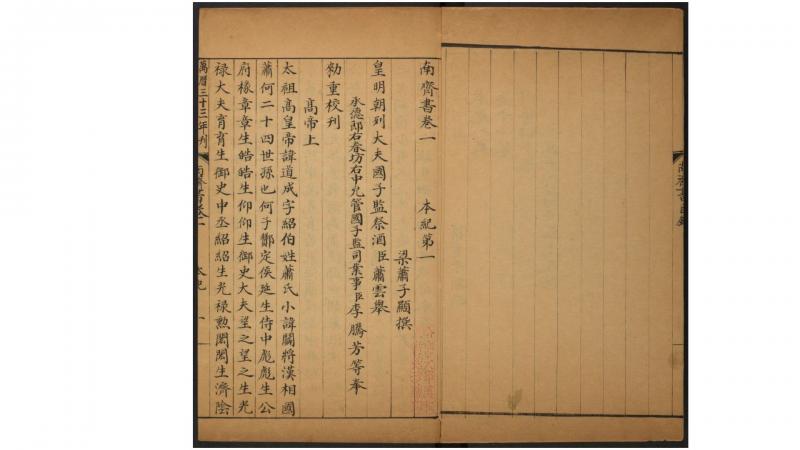 南齊書卷一 本紀第一
梁蕭子顯撰
皇明朝列大夫國子監祭酒臣蕭雲舉
承德郎右春坊右中允管國子監司業事臣李騰芳等奉
勑重校刊
高帝上
太祖高皇帝諱道成字紹伯姓蕭氏小諱鬬將漢相國
蕭何二十四世孫也何子酇定侯延生侍中彪彪生公
府椽章章生皓皓生仰仰生御史大夫望之望之生光
祿大夫育育生御史中丞紹紹生光祿勲閎閎生濟陰
萬曆三十三年刊 南齊書卷一 本紀 一